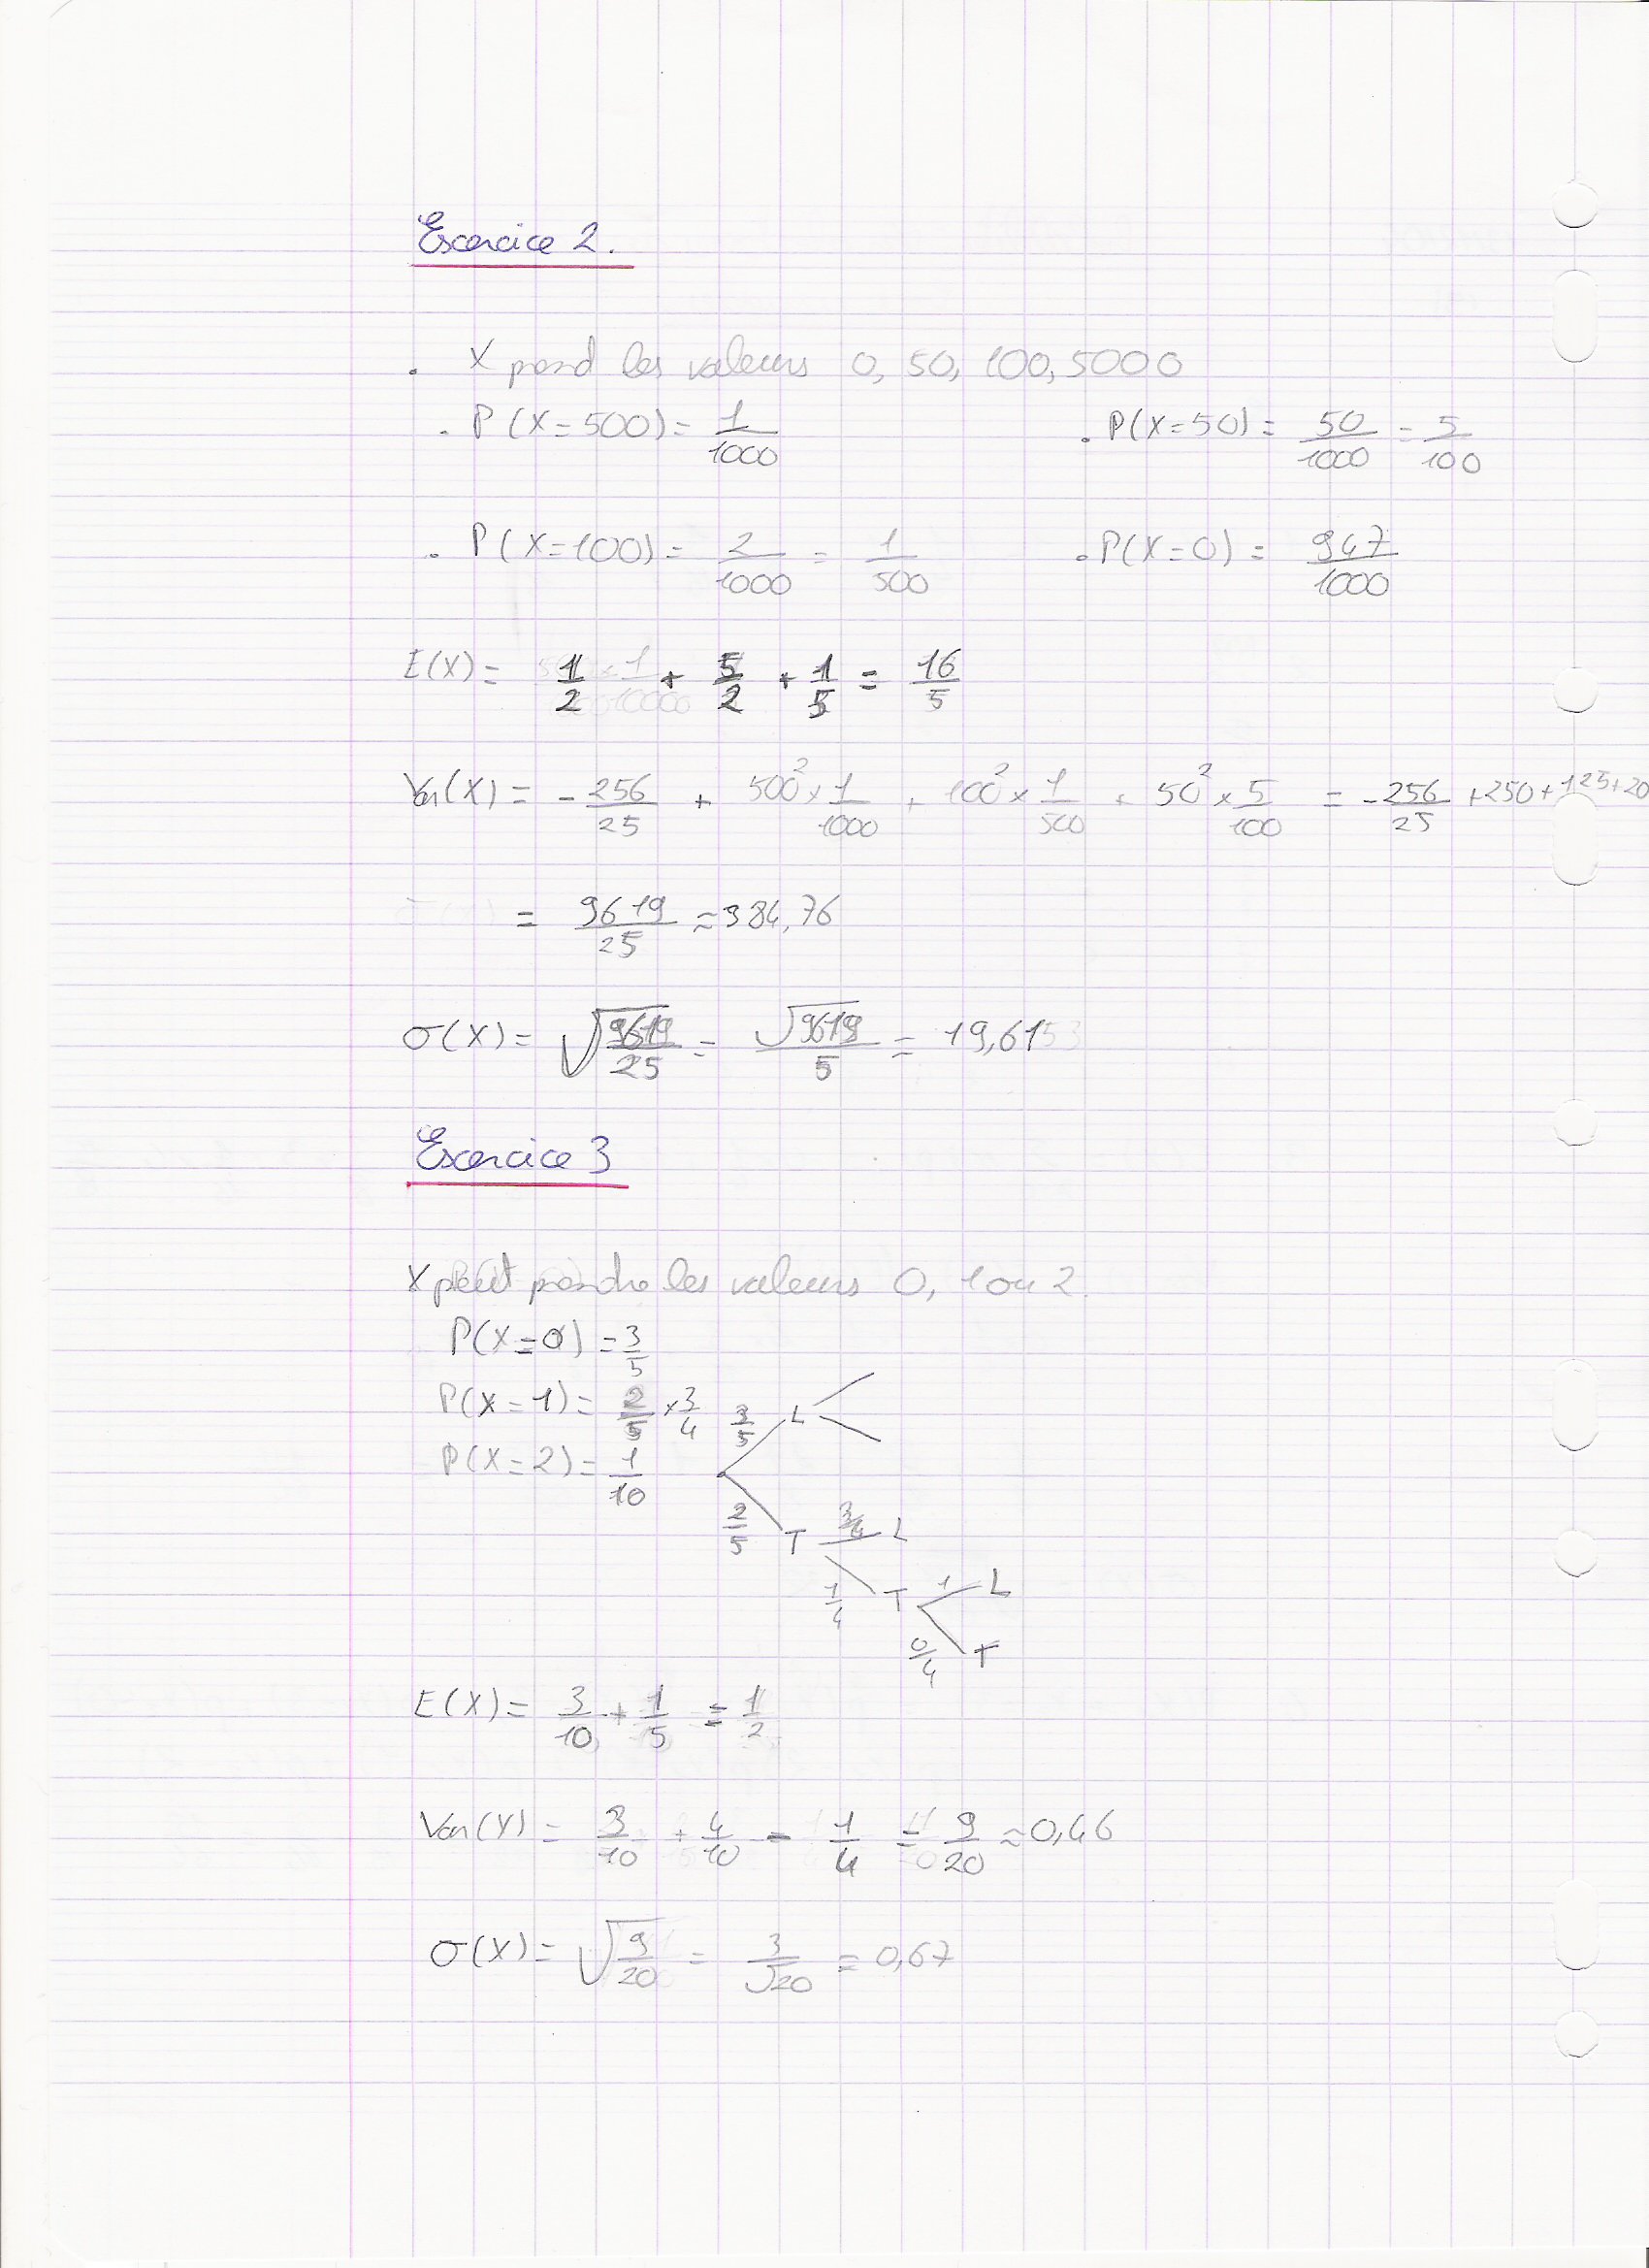 Exercice 2.
. X prend les valeurs 0, 50, 100, 5000
. P(X=500) = 1/1000 . P(X=50) = 50/1000 = 5/100
. P(X=100) = 2/1000 = 1/500 . P(X=0) = 947/1000
E(X) = 1/2 + 5/2 + 1/5 = 16/5
Var(X) = -256/25 + 500² × 1/1000 + 100² × 1/500 + 50² × 5/100 = -256/25 + 250 + 125 + 20
= 9619/25 ≈ 384,76
σ(X) = √(9619/25) = √9619/5 = 19,6153
Exercice 3
X peut prendre les valeurs 0, 1 ou 2.
P(X=0) = 3/5
P(X=1) = 2/5 × 3/4
P(X=2) = 1/10
3/5 L
2/5 T 3/4 L
1/4 T 1 L
0/4 T
E(X) = 3/10 + 1/5 = 1/2
Var(X) = 3/10 + 4/10 - 1/4 = 9/20 ≈ 0,46
σ(X) = √(9/20) = 3/√20 = 0,67